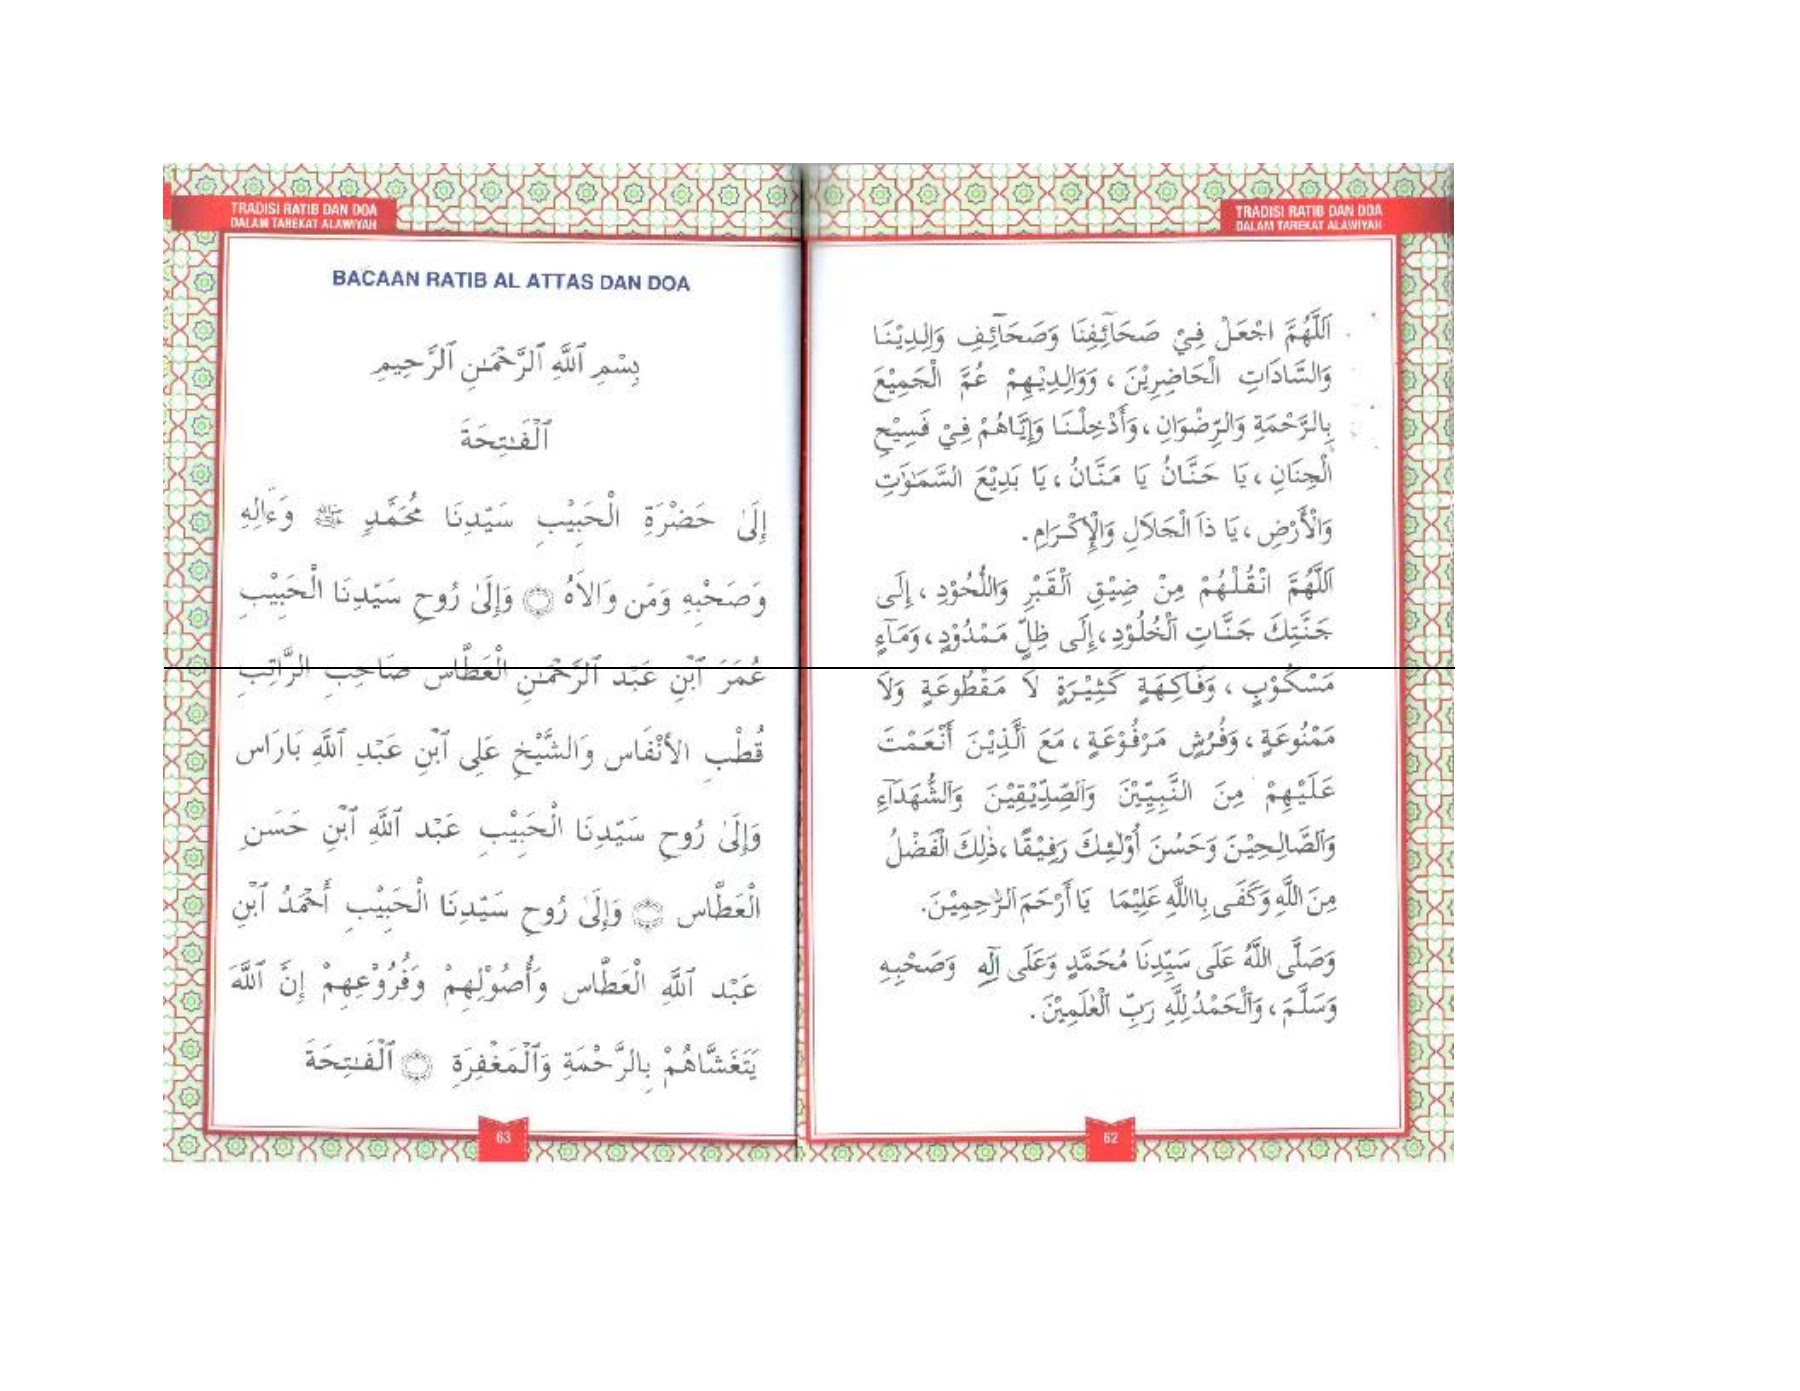 TRADISI RATIB DAN DOA
DALAM TAREKAT ALAWIYAH
اَللَّهُمَّ اجْعَلْ فِيْ صَحَآئِفِنَا وَصَحَآئِفِ وَالِدِيْنَا
وَالسَّادَاتِ الْحَاضِرِيْنَ ، وَوَالِدِيْهِمْ عُمَّ الْجَمِيْعَ
بِالرَّحْمَةِ وَالرِّضْوَانِ ، وَأَدْخِلْنَا وَإِيَّاهُمْ فِيْ فَسِيْحِ
الْجِنَانِ ، يَا حَنَّانُ يَا مَنَّانُ ، يَا بَدِيْعَ السَّمَوٰتِ
وَالْأَرْضِ ، يَا ذَا الْجَلَالِ وَالْإِكْرَامِ .
اَللَّهُمَّ انْقُلْهُمْ مِنْ ضِيْقِ اَلْقَبْرِ وَاللُّحُوْدِ ، إِلَى
جَنَّتِكَ جَنَّاتِ اَلْخُلُوْدِ ، إِلَى ظِلٍّ مَمْدُوْدٍ ، وَمَآءٍ
مَسْكُوْبٍ ، وَفَاكِهَةٍ كَثِيْرَةٍ لَا مَقْطُوعَةٍ وَلَا
مَمْنُوعَةٍ ، وَفُرُشٍ مَرْفُوْعَةٍ ، مَعَ اَلَّذِيْنَ أَنْعَمْتَ
عَلَيْهِمْ مِنَ النَّبِيِّيْنَ وَالصِّدِّيْقِيْنَ وَالشُّهَدَآءِ
وَالصَّالِحِيْنَ وَحَسُنَ أُوْلٰئِكَ رَفِيْقًا ، ذٰلِكَ الْفَضْلُ
مِنَ اللَّهِ وَكَفَى بِااللَّهِ عَلِيْمًا يَا أَرْحَمَ الرّٰحِمِيْنَ.
وَصَلَّى اللَّهُ عَلَى سَيِّدِنَا مُحَمَّدٍ وَعَلَى آلِهِ وَصَحْبِهِ
وَسَلَّمَ ، وَالْحَمْدُ لِلَّهِ رَبِّ الْعٰلَمِيْنَ .
62
TRADISI RATIB DAN DOA
DALAM TAREKAT ALAWIYAH
BACAAN RATIB AL ATTAS DAN DOA
بِسْمِ ٱللَّهِ ٱلرَّحْمَـٰنِ ٱلرَّحِيمِ
ٱلْفَـٰتِحَةَ
إِلَىٰ حَضْرَةِ الْحَبِيْبِ سَيِّدِنَا مُحَمَّدٍ ﷺ وَءَالِهِ
وَصَحْبِهِ وَمَن وَالَاهُ ۝ وَإِلَىٰ رُوحِ سَيِّدِنَا الْحَبِيْبِ
عُمَرَ ٱبْنِ عَبْد ٱلرَّحْمَـٰنِ الْعَطَّاس صَاحِبِ الرَّاتِبِ
قُطْبِ الأَنْفَاس وَالشَّيْخِ عَلِى ٱبْنِ عَبْدِ ٱللَّهِ بَارَاس
وَإِلَىٰ رُوحِ سَيِّدِنَا الْحَبِيْبِ عَبْد ٱللَّهِ ٱبْنِ حَسَنِ
الْعَطَّاس ۝ وَإِلَىٰ رُوحِ سَيِّدِنَا الْحَبِيْبِ أَحْمَدُ ٱبْنِ
عَبْد ٱللَّهِ الْعَطَّاس وَأُصُوْلِهِمْ وَفُرُوْعِهِمْ إِنَّ ٱللَّهَ
يَتَغَشَّاهُمْ بِالرَّحْمَةِ وَٱلْمَغْفِرَةِ ۝ ٱلْفَـٰتِحَةَ
63